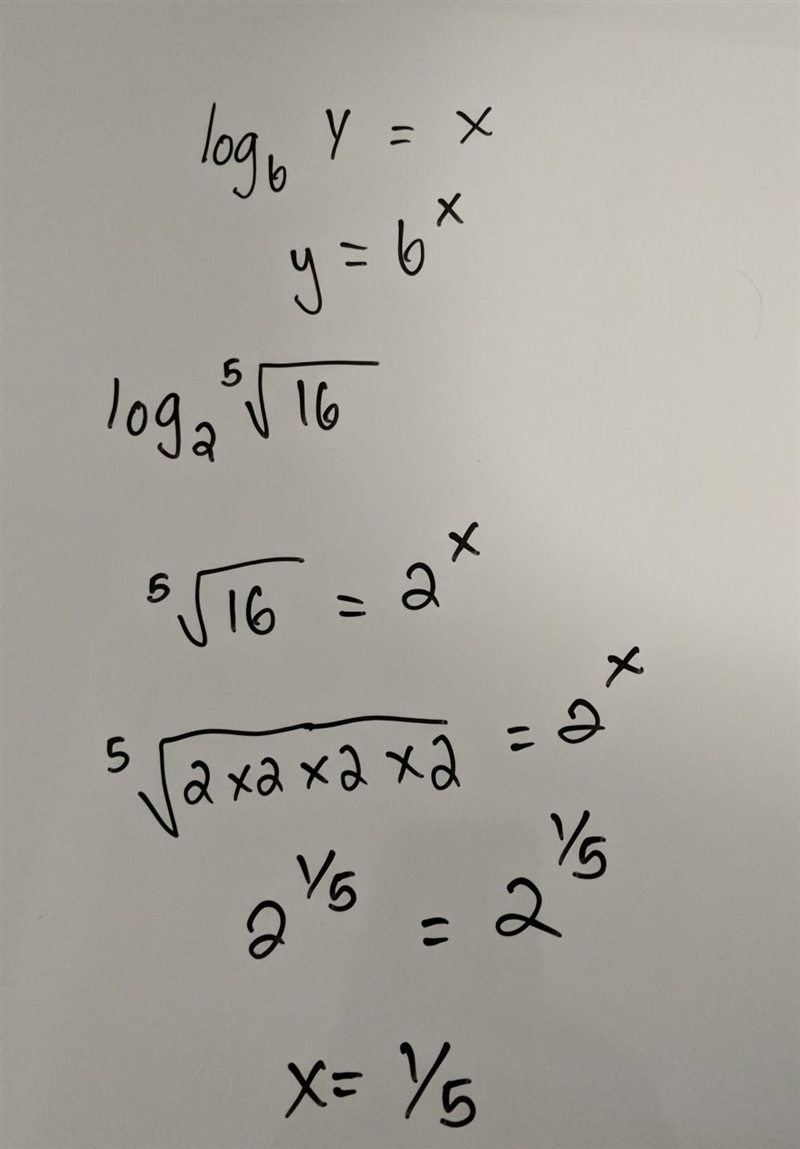 log_b y = x
y = b^x
log_2 ⁵√16
⁵√16 = 2^x
⁵√2×2×2×2 = 2^x
2^1/5 = 2^1/5
x = 1/5